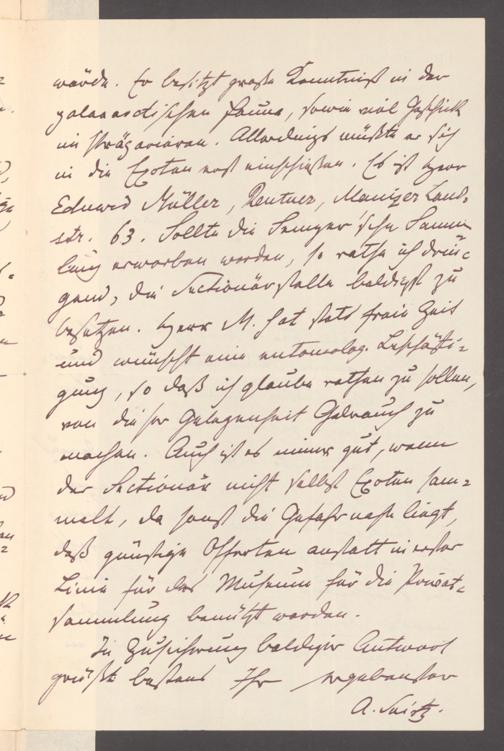 würde. Er besitzt große Kenntniß in der
palaearctischen Fauna, sowie viel Geschick
im Präpariren. Allerdings müßte er sich
in die Exoten erst einschießen. Es ist Herr
Eduard Müller, Rentner, Mainzer Land-
str. 63. Sollte die Semper'sche Samm
lung erworben werden, so rathe ich drin-
gend, die Sectionärstelle baldigst zu
besetzen. Herr M. hat stets freie Zeit
und wünscht eine entomolog. Beschäfti-
gung, so daß ich glaube rathen zu sollen,
von dieser Gelegenheit Gebrauch zu
machen. Auch ist es immer gut, wenn
der Sectionär nicht selbst Exoten sam-
melt, da sonst die Gefahr nahe liegt,
daß günstige Offerten anstatt in erster
Linie für das Museum für die Privat-
sammlung benützt werden.
In Zusicherung baldiger Antwort
grüßt bestens Ihr ergebenster
A. Seitz.